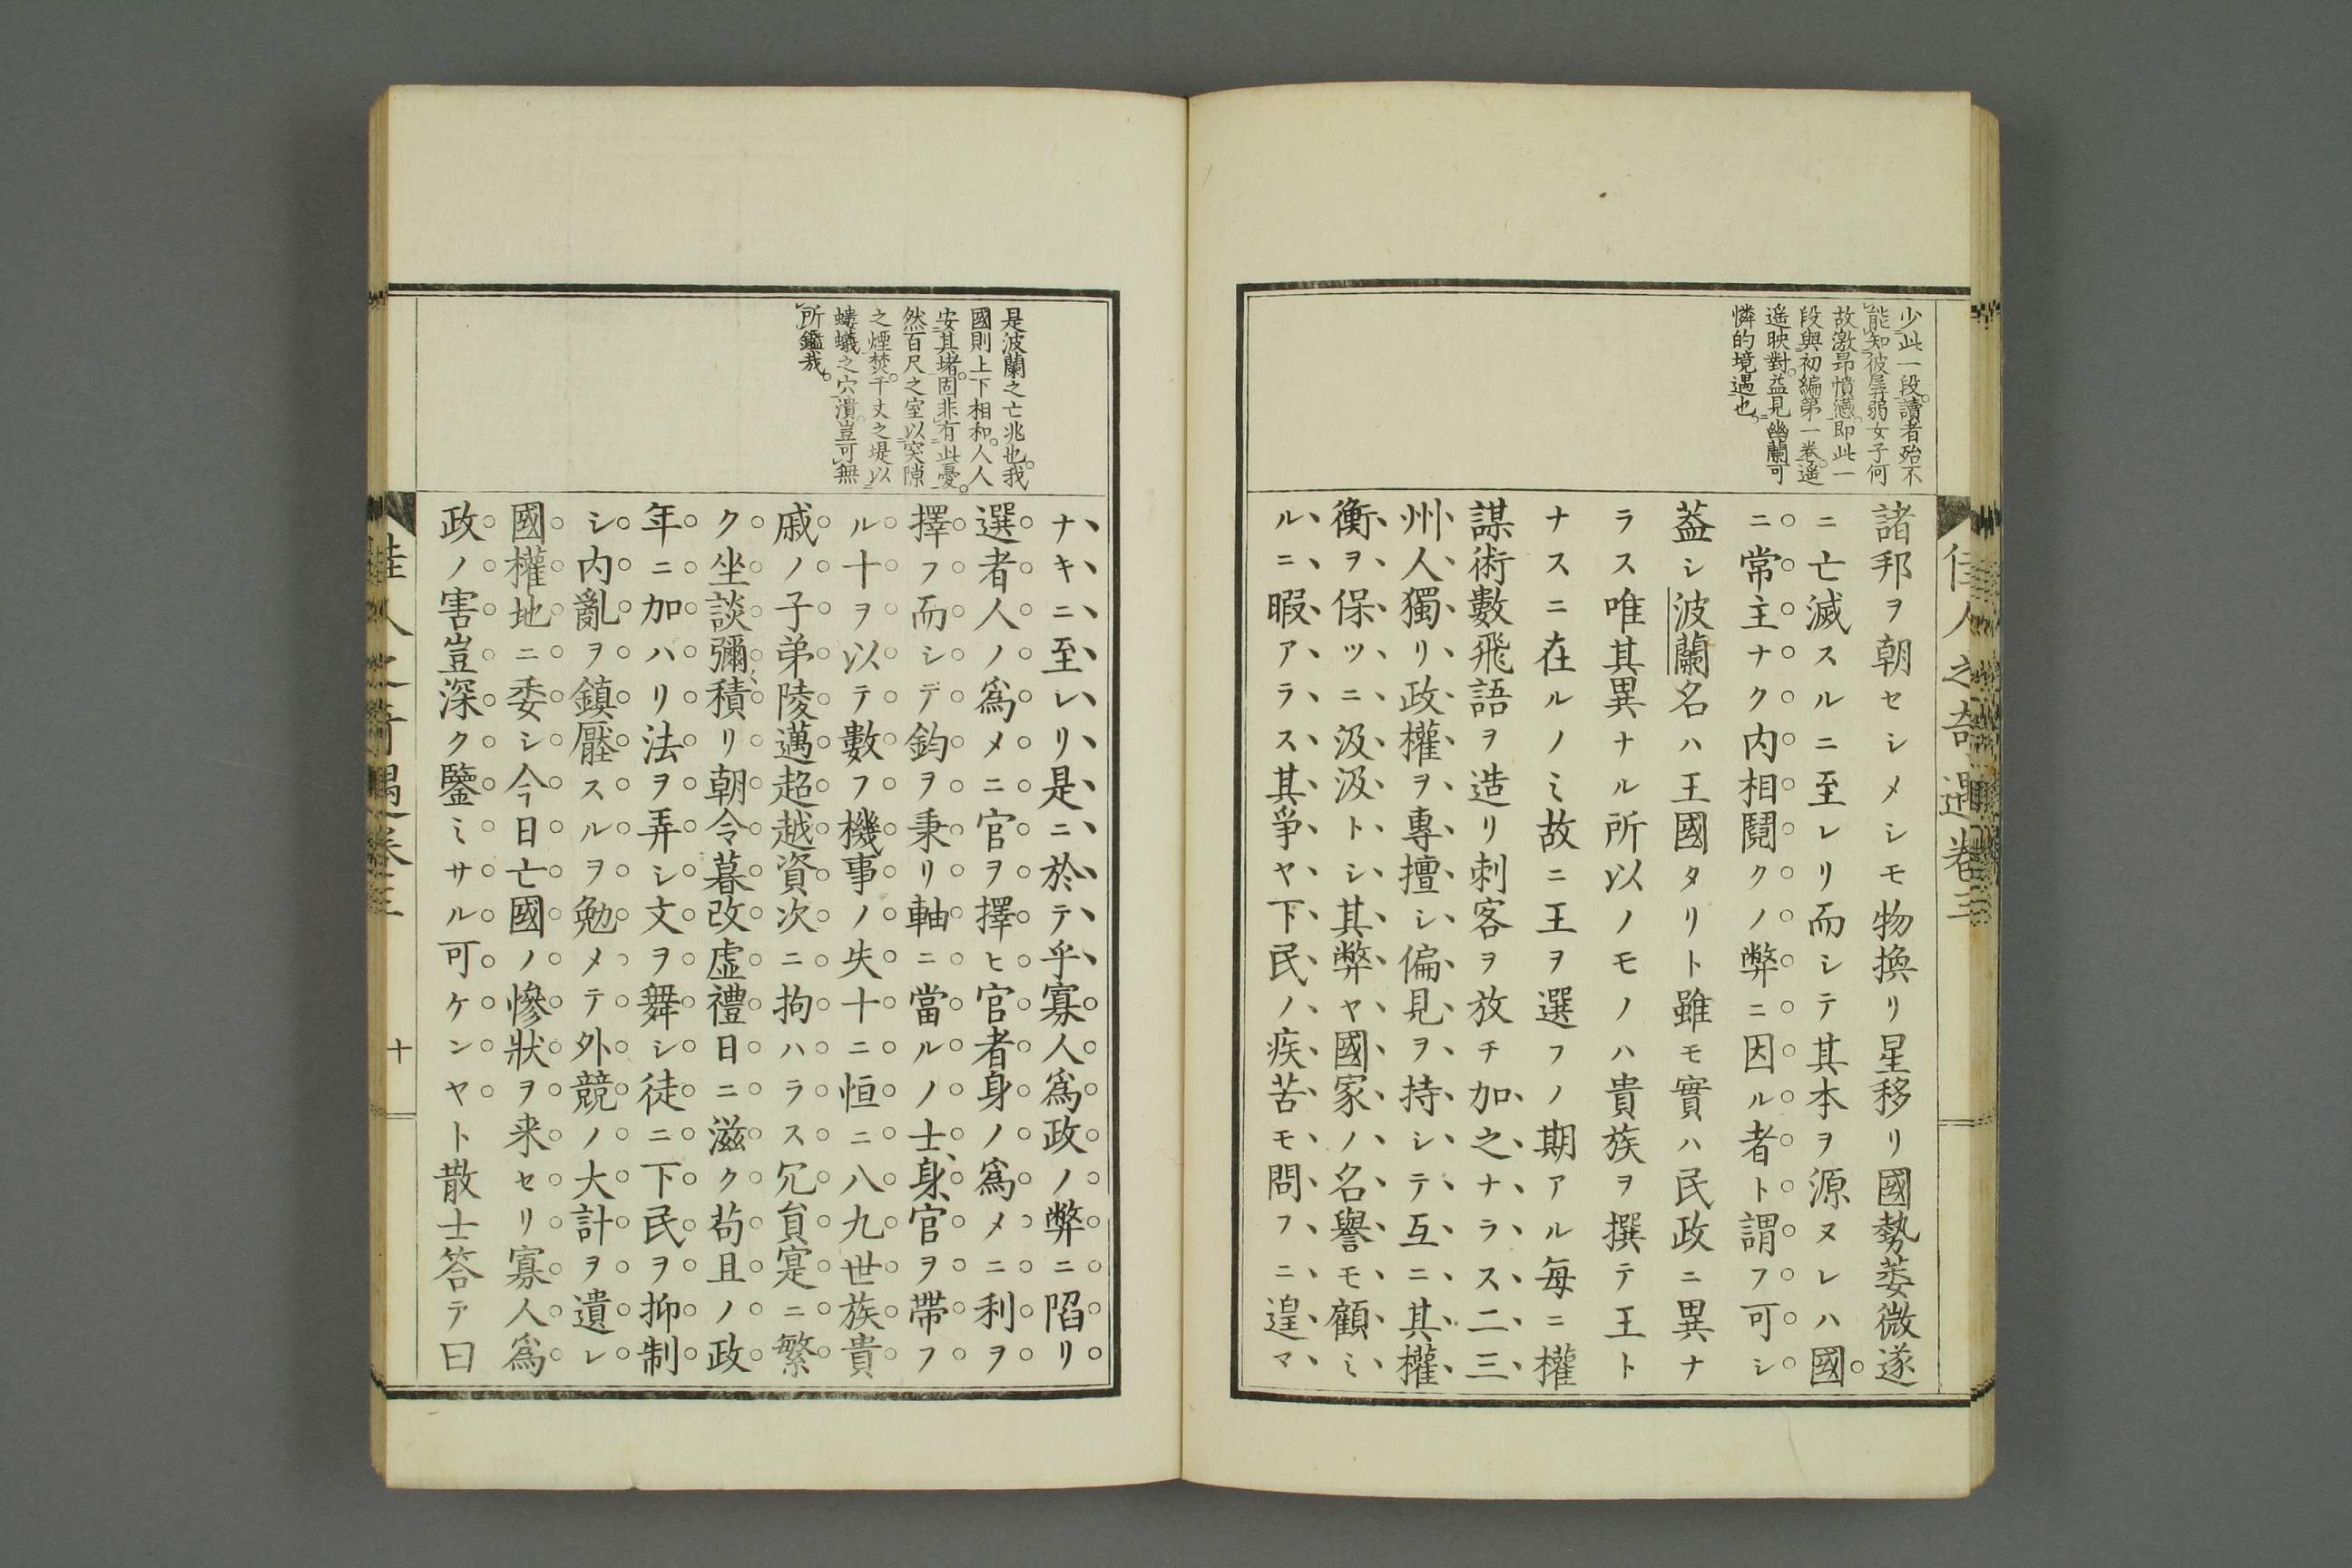 佳人之奇遇卷三
少此一段讀者殆不
能知彼孱弱女子何
故激昂憤懣即此一
段與初編第一卷遙
遙映對益見幽蘭可
憐的境遇也
諸邦ヲ朝セシメシモ物換リ星移リ國勢萎微遂
ニ亡滅スルニ至レリ而シテ其本ヲ源ヌレハ國
ニ常主ナク内相鬩クノ弊ニ因ル者ト謂フ可シ
葢シ波蘭名ハ王國タリト雖モ實ハ民政ニ異ナ
ラス唯其異ナル所以ノモノハ貴族ヲ撰テ王ト
ナスニ在ルノミ故ニ王ヲ選フノ期アル每ニ權
謀術數飛語ヲ造リ刺客ヲ放チ加之ナラス二三
州人獨リ政權ヲ專擅シ偏見ヲ持シテ互ニ其權
衡ヲ保ツニ汲汲トシ其弊ヤ國家ノ名譽モ顧ミ
ルニ暇アラス其爭ヤ下民ノ疾苦モ問フニ遑マ
是波蘭之亡兆也我
國則上下相和人人
安其堵固非有此憂
然百尺之室以突隙
之煙焚千丈之堤以
螻蟻之穴潰豈可無
所鑑哉
ナキニ至レリ是ニ於テ乎寡人爲政ノ弊ニ陷リ
選者人ノ爲メニ官ヲ擇ヒ官者身ノ爲メニ利ヲ
擇フ而シテ鈞ヲ秉リ軸ニ當ルノ士身官ヲ帶フ
ル十ヲ以テ數フ機事ノ失十ニ恒ニ八九世族貴
戚ノ子弟陵邁超越資次ニ拘ハラス冗貟寔ニ繁
ク坐談彌積リ朝令暮改虛禮日ニ滋ク苟且ノ政
年ニ加ハリ法ヲ弄シ文ヲ舞シ徒ニ下民ヲ抑制
シ内亂ヲ鎭壓スルヲ勉メテ外競ノ大計ヲ遺レ
國權地ニ委シ今日亡國ノ慘狀ヲ来セリ寡人爲
政ノ害豈深ク鑒ミサル可ケンヤト散士答テ曰
佳人之奇遇卷三
十